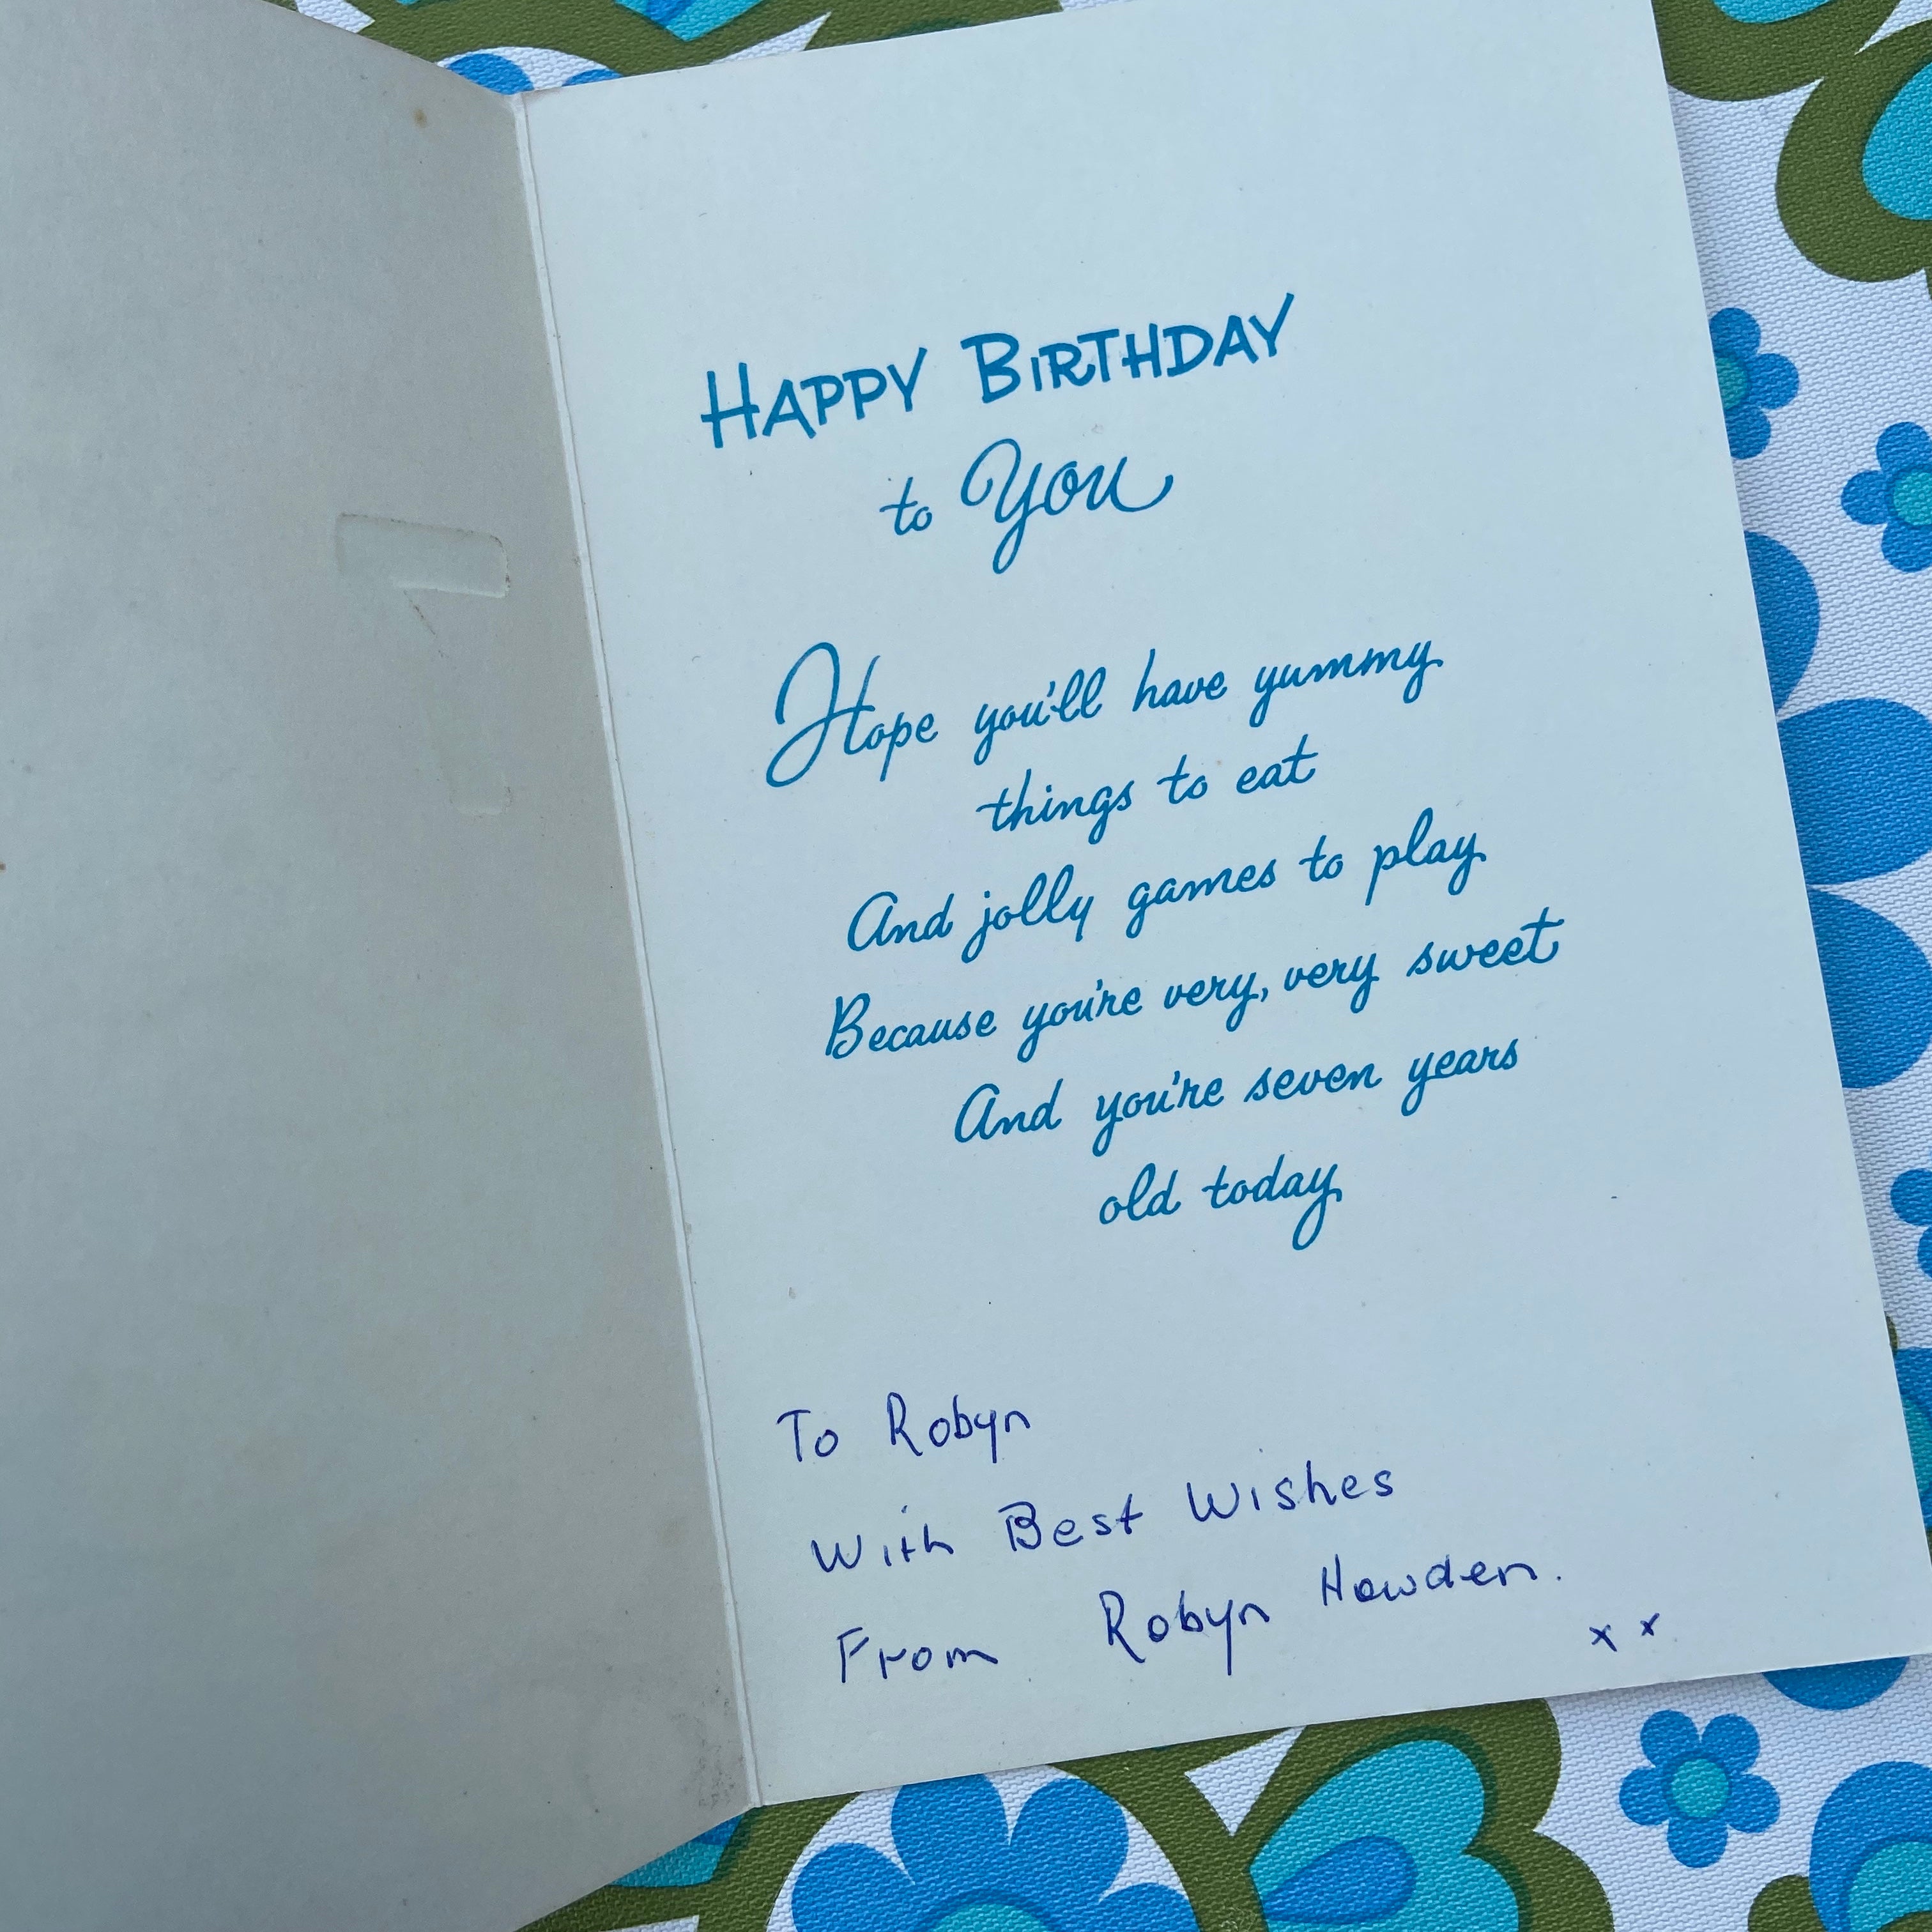 HAPPY BIRTHDAY
to You
Hope you'll have yummy
things to eat
And jolly games to play
Because you're very, very sweet
And you're seven years
old today
To Robyn
With Best Wishes
From Robyn Howden.
x x